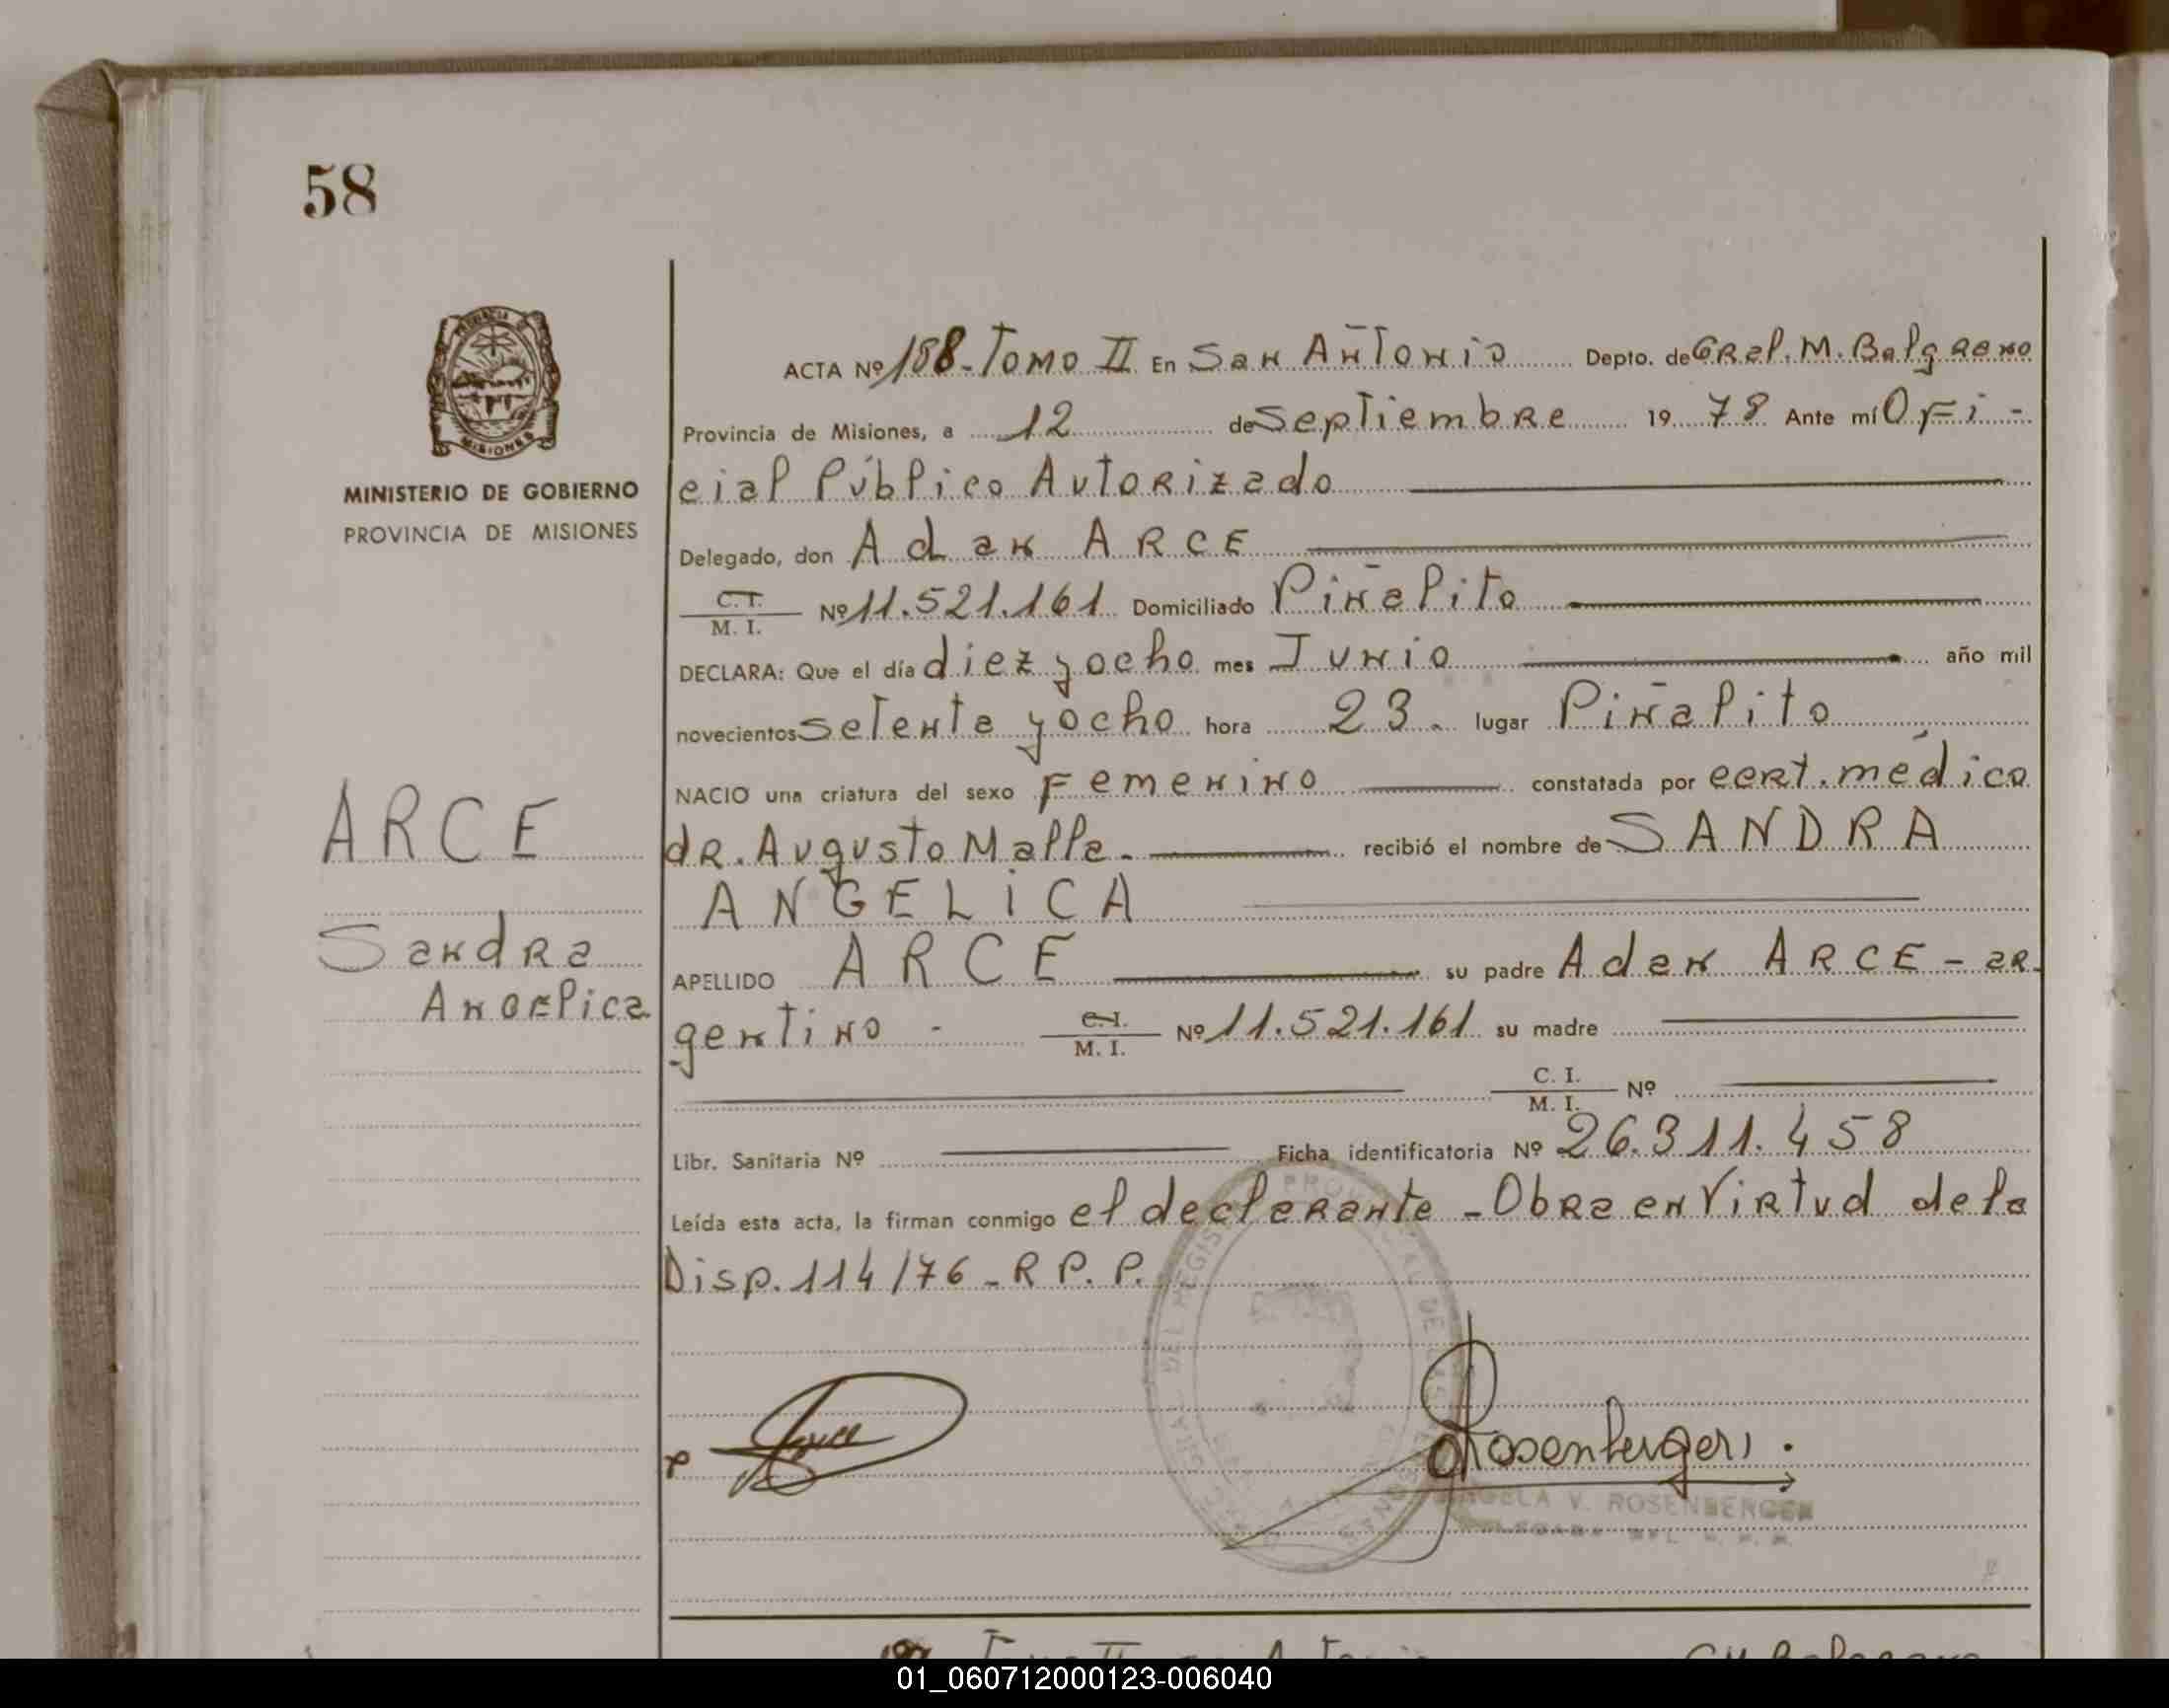 58
MINISTERIO DE GOBIERNO
PROVINCIA DE MISIONES
ARCE
Sandra
Angelica
ACTA Nº 188-Tomo II En San Antonio Depto. de Gral. M. Belgrano
Provincia de Misiones, a 12 de Septiembre 19 78 Ante mí Ofi-
cial Público Autorizado
Delegado, don Adan ARCE
C.I. M. I. Nº 11.521.161 Domiciliado Piñalito
DECLARA: Que el día diez y ocho mes Junio año mil
novecientos setenta y ocho hora 23. lugar Piñalito
NACIO una criatura del sexo Femenino constatada por cert. médico
dr. Augusto Malla. recibió el nombre de SANDRA
ANGELICA
APELLIDO ARCE su padre Adan ARCE - ar-
gentino - C.I. M. I. Nº 11.521.161 su madre
C. I. M. I. Nº
Libr. Sanitaria Nº Ficha identificatoria Nº 26.311.458
Leída esta acta, la firman conmigo el declarante - Obra en Virtud de la
Disp. 114/76 - R P. P.
Arce
Rosenberger
ANGELA V. ROSENBERGER
01_060712000123-006040